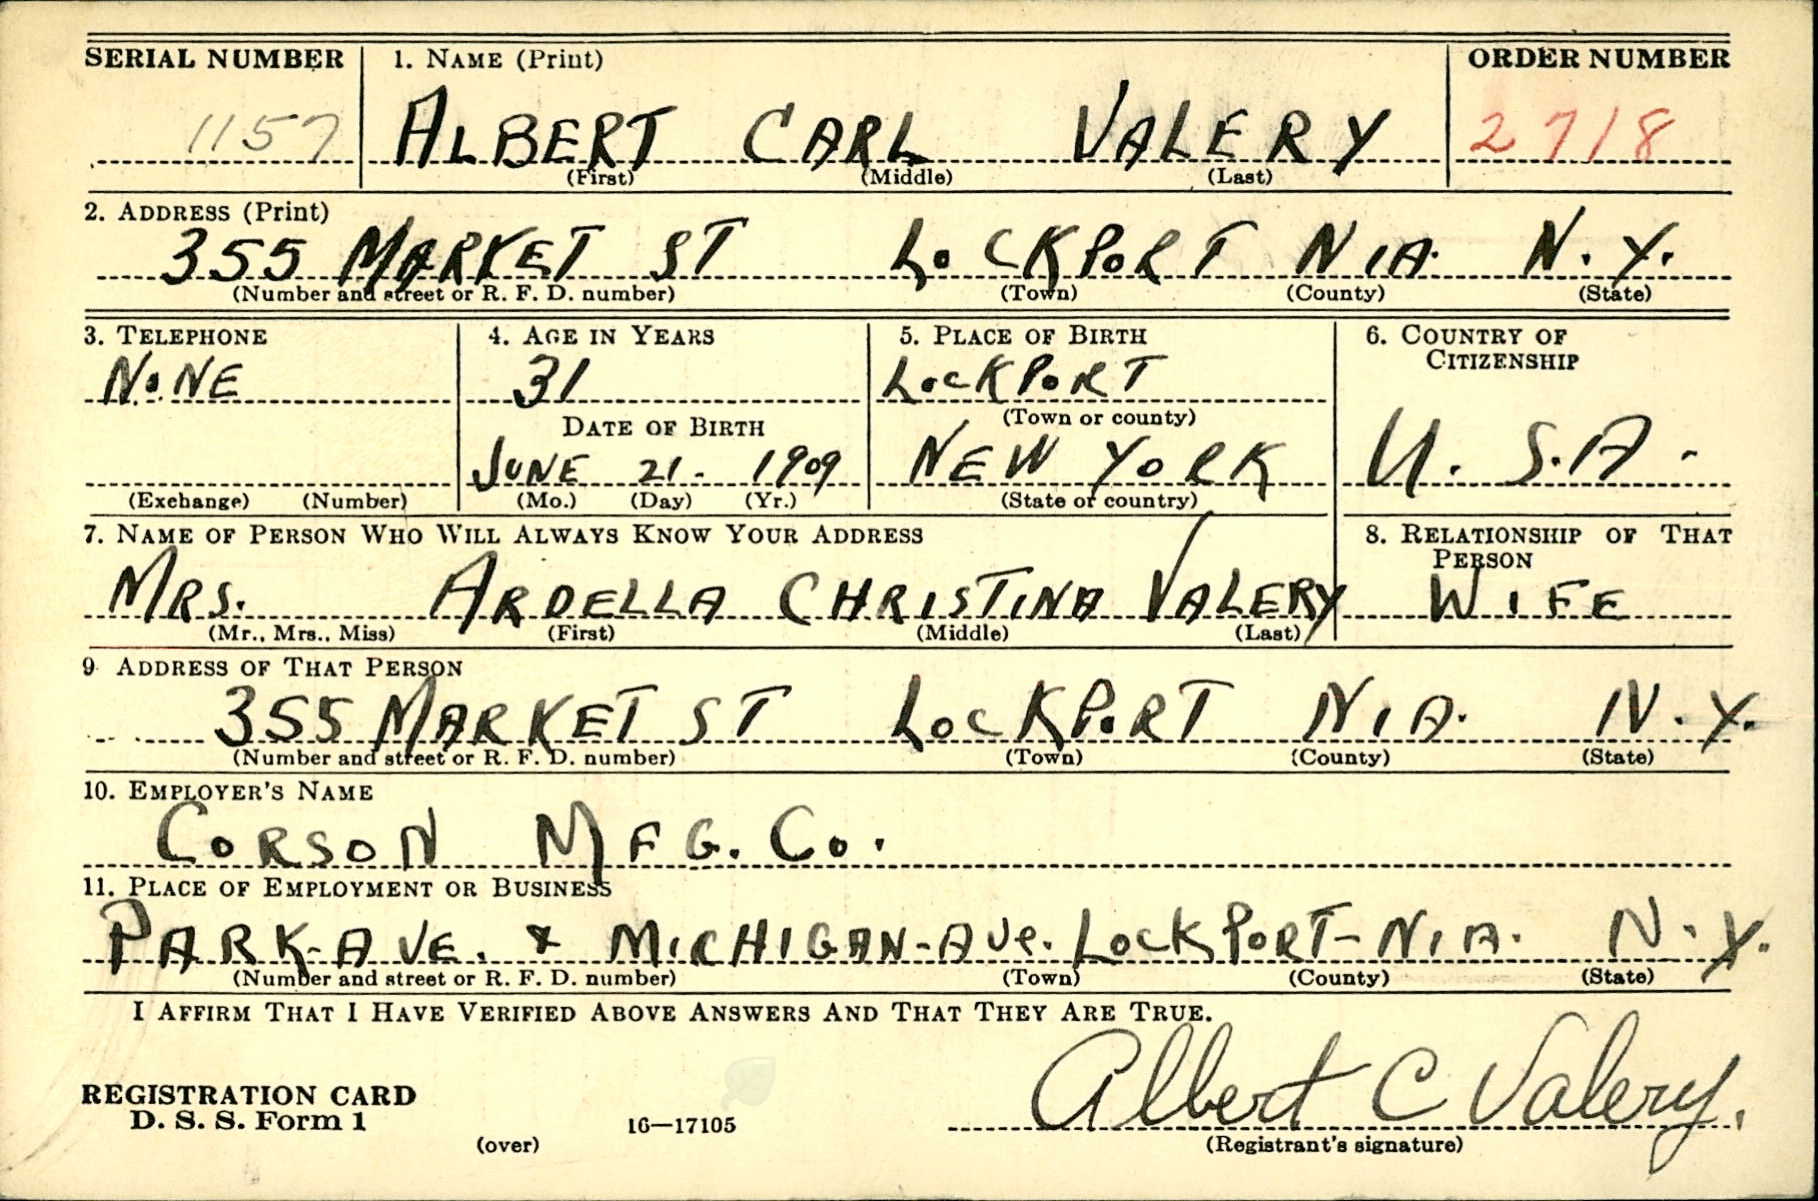 SERIAL NUMBER 1. NAME (Print) ORDER NUMBER
1157 ALBERT CARL VALERY 2718
(First) (Middle) (Last)
2. ADDRESS (Print)
355 MARKET ST LOCKPORT NIA. N.Y.
(Number and street or R. F. D. number) (Town) (County) (State)
3. TELEPHONE 4. AGE IN YEARS 5. PLACE OF BIRTH 6. COUNTRY OF
CITIZENSHIP
NONE 31 LOCKPORT
(Town or county)
DATE OF BIRTH
JUNE 21. 1909 NEW YORK U.S.A.
(Exchange) (Number) (Mo.) (Day) (Yr.) (State or country)
7. NAME OF PERSON WHO WILL ALWAYS KNOW YOUR ADDRESS 8. RELATIONSHIP OF THAT
PERSON
MRS. ARDELLA CHRISTINA VALERY WIFE
(Mr., Mrs., Miss) (First) (Middle) (Last)
9 ADDRESS OF THAT PERSON
355 MARKET ST LOCKPORT NIA. N.Y.
(Number and street or R. F. D. number) (Town) (County) (State)
10. EMPLOYER'S NAME
CORSON MFG. Co.
11. PLACE OF EMPLOYMENT OR BUSINESS
PARK-AVE. & MICHIGAN-AVE. LOCKPORT-NIA. N.Y.
(Number and street or R. F. D. number) (Town) (County) (State)
I AFFIRM THAT I HAVE VERIFIED ABOVE ANSWERS AND THAT THEY ARE TRUE.
Albert C Valery.
REGISTRATION CARD
D. S. S. Form 1 16—17105
(over) (Registrant's signature)